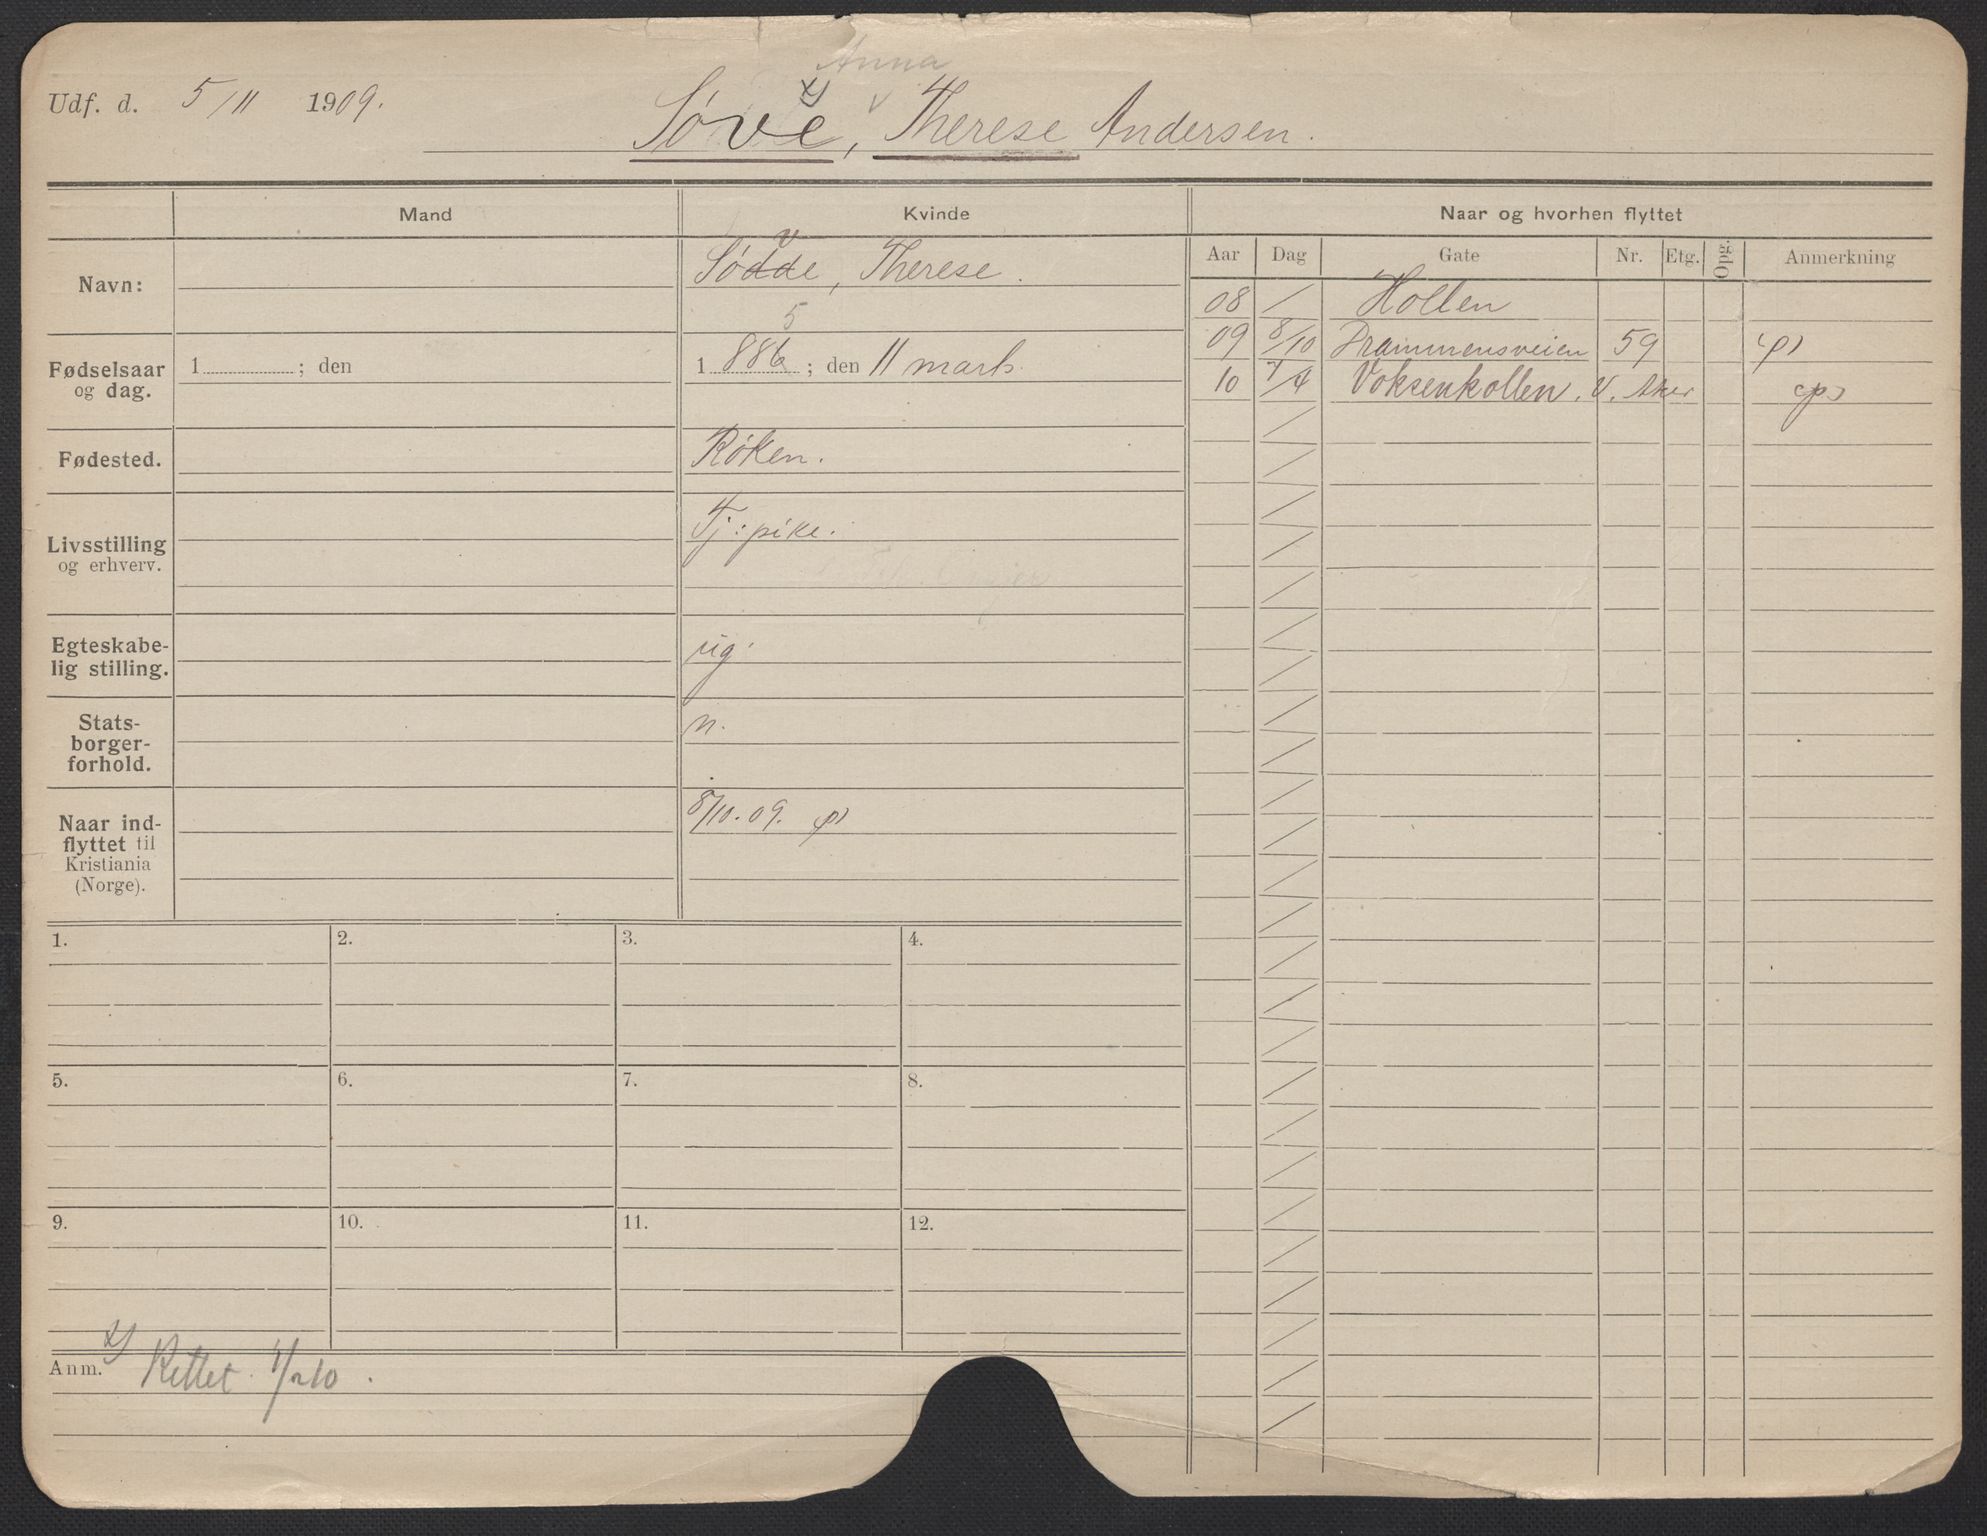 Anna
Udf. d. 5/11 1909.
x) v
Søve, Therese Andersen.
Mand Kvinde Naar og hvorhen flyttet
Aar Dag Gate Nr. Etg. Opg. Anmerkning
Navn:
v
Sødde, Therese.
08 / Hollen
09 8/10 Drammensveien 59
10 7/4 Voksenkollen. V. Aker
Fødselsaar
og dag.
1 ; den
5
1 886 ; den 11 marts.
Fødested.
Røken.
Livsstilling
og erhverv.
Tj: pike.
Egteskabe-
lig stilling.
ug.
Stats-
borger-
forhold.
n.
Naar ind-
flyttet til
Kristiania
(Norge).
8/10.09.
1. 2. 3. 4.
5. 6. 7. 8.
9. 10. 11. 12.
Anm. x) Rettet. 1/2 10.